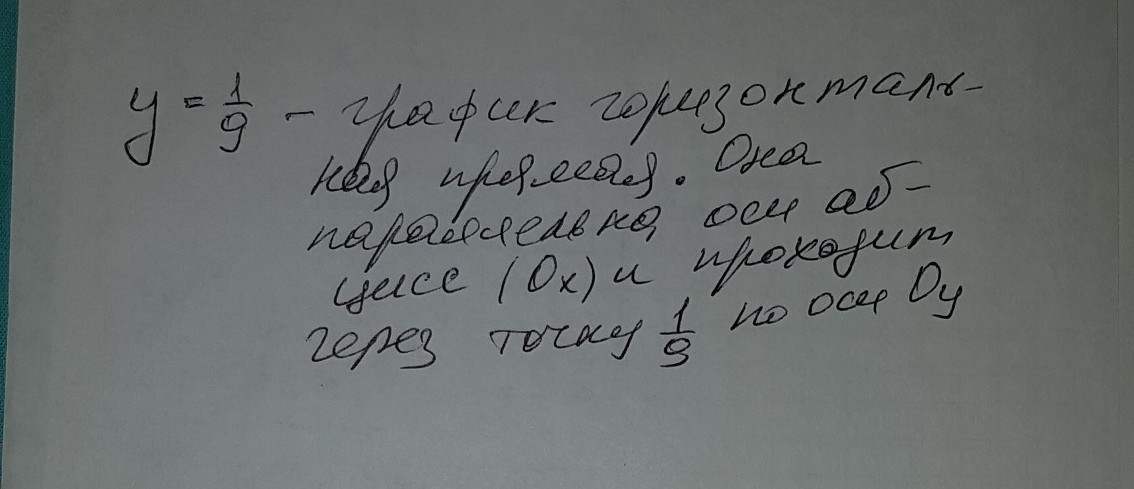 y = 1/9 - график горизонталь-
ная прямая. Она
параллельна оси аб-
цисс (Ox) и проходит
через точку 1/9 по оси Oy